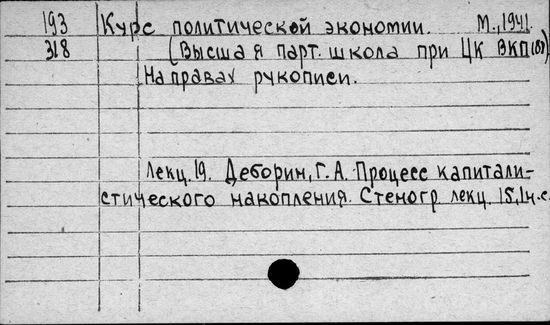 193 Курс политической экономии. М., 1941.
318 (Высшая парт. школа при ЦК ВКП(б))
На правах рукописи.
Лекц. 19. Деборин, Г. А. Процесс капитали-
стического накопления. Стеногр. лекц. 15, 1н.с.